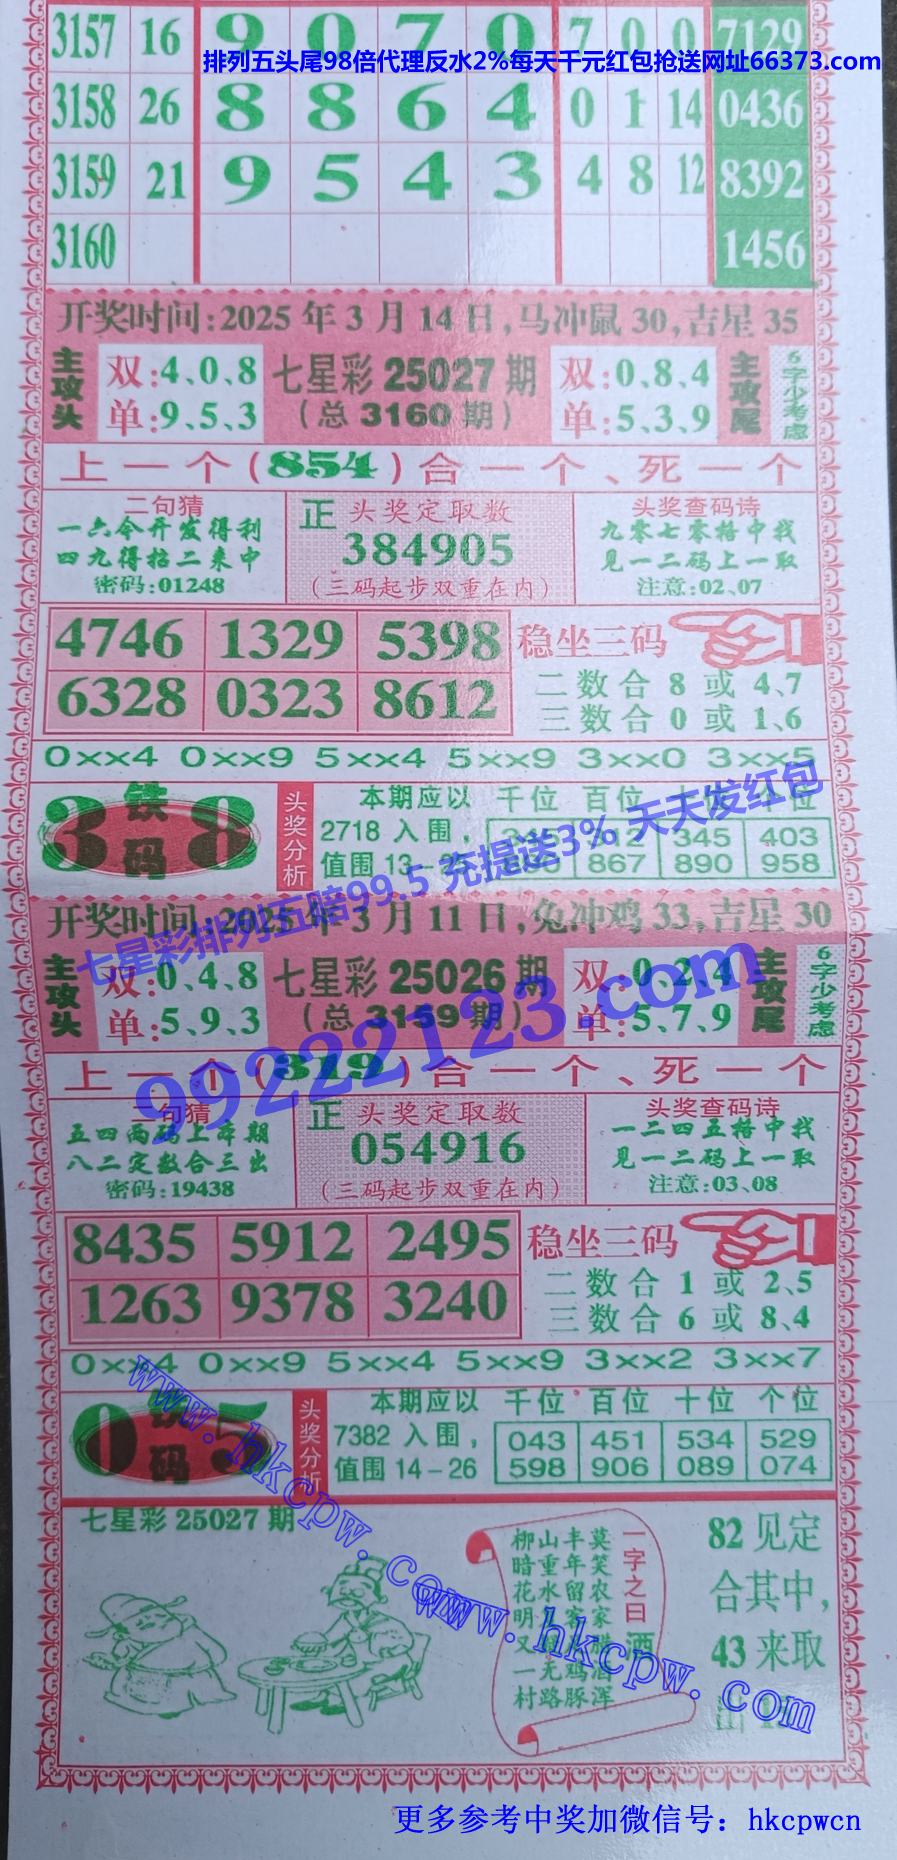 3157 16 9 0 7 0 7 0 0 7129
排列五头尾98倍代理反水2%每天千元红包抢送网址66373.com
3158 26 8 8 6 4 0 1 14 0436
3159 21 9 5 4 3 4 8 12 8392
3160 1456
开奖时间:2025年3月14日,马冲鼠30,吉星35
主攻头 双:4、0、8 七星彩25027期 双:0、8、4 主攻尾 6字少考虑
单:9、5、3 (总3160期) 单:5、3、9
上一个(854)合一个、死一个
二句猜 正 头奖定取数 头奖查码诗
一六今开发得利 384905 九零七零格中找
四九得拈二来中 (三码起步双重在内) 见一二码上一取
密码:01248 注意:02、07
4746 1329 5398 稳坐三码
6328 0323 8612 二数合8或4、7
三数合0或1、6
0××4 0××9 5××4 5××9 3××0 3××5
38 铁码 头奖分析 本期应以 千位 百位 十位 个位
2718入围, 345 403
值围13-25 867 890 958
七星彩排列五赔99.5 充提送3% 天天发红包
开奖时间:2025年3月11日,兔冲鸡33,吉星30
主攻头 双:0、4、8 七星彩25026期 双:0、2、4 主攻尾 6字少考虑
单:5、9、3 (总3159期) 单:5、7、9
99222123.com
上一个(319)合一个、死一个
二句猜 正 头奖定取数 头奖查码诗
五四两码上本期 054916 一二四五格中找
八二定数合三出 (三码起步双重在内) 见一二码上一取
密码:19438 注意:03、08
8435 5912 2495 稳坐三码
1263 9378 3240 二数合1或2、5
三数合6或8、4
0××4 0××9 5××4 5××9 3××2 3××7
05 铁码 头奖分析 本期应以 千位 百位 十位 个位
7382入围, 043 451 534 529
值围14-26 598 906 089 074
www.hkcpw.com
七星彩25027期
一字之曰 酒
莫笑农家腊酒浑
丰年留客鸡豚
山重水无路
柳暗花明又一村
82见定
合其中,
43来取
www.hkcpw.com
更多参考中奖加微信号：hkcpwcn